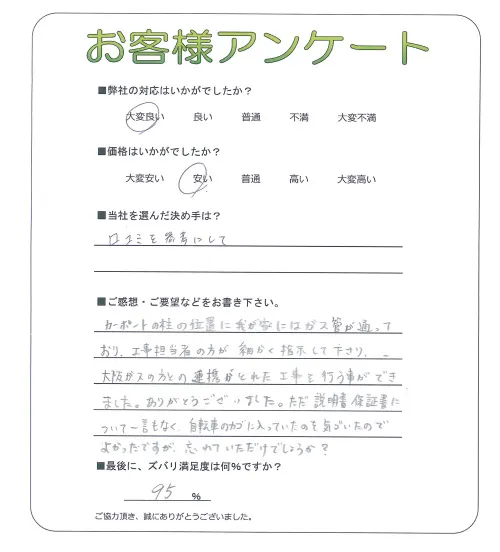 お客様アンケート
■弊社の対応はいかがでしたか？
大変良い 良い 普通 不満 大変不満
■価格はいかがでしたか？
大変安い 安い 普通 高い 大変高い
■当社を選んだ決め手は？
口コミを参考にして
■ご感想・ご要望などをお書き下さい。
カーポートの柱の位置に我が家にはガス管が通って
おり、工事担当者の方が細かく指示して下さり、
大阪ガスの方との連携がとれた工事を行う事ができ
ました。ありがとうございました。ただ説明書保証書に
ついて一言もなく、自転車のカゴに入っていたのを気づいたので
よかったですが、忘れていただけでしょうか？
■最後に、ズバリ満足度は何%ですか？
95 %
ご協力頂き、誠にありがとうございました。